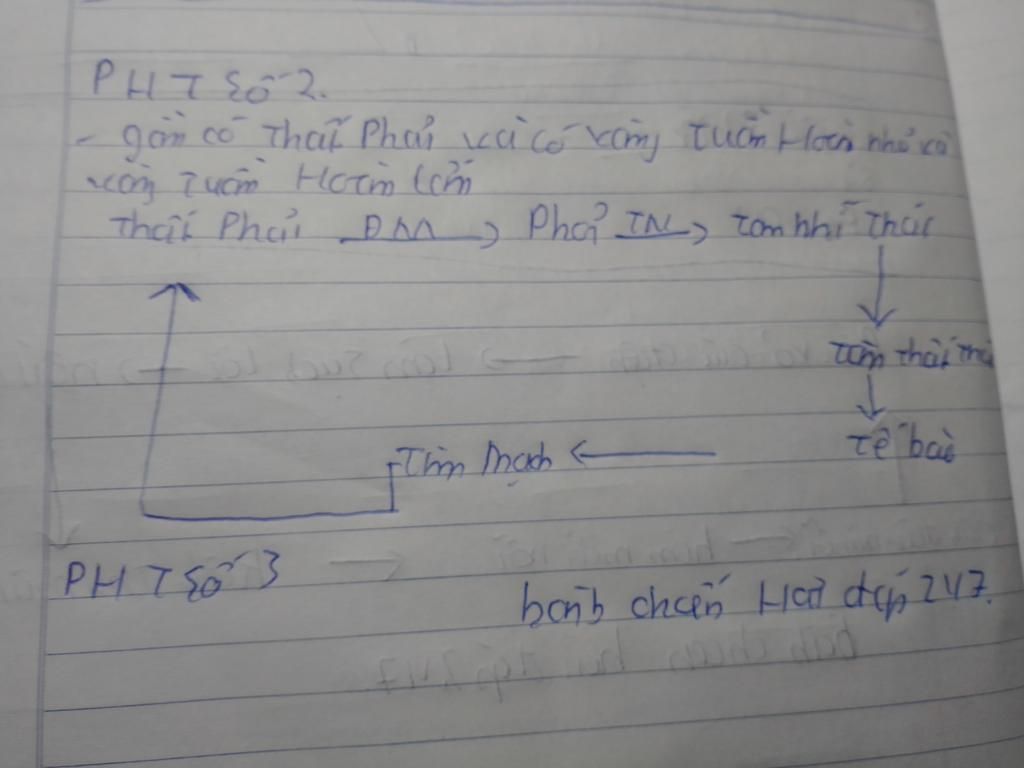 PHT số 2.
- gồm có Thất Phải và có vòng Tuần Hoàn nhỏ và
vòng Tuần Hoàn lớn
Thất Phải ĐM Phổi TM tâm nhĩ Thái
tâm thất thá
Tế bào
Tĩnh Mạch
PHT số 3
hành chấn Hỏi đáp 247.